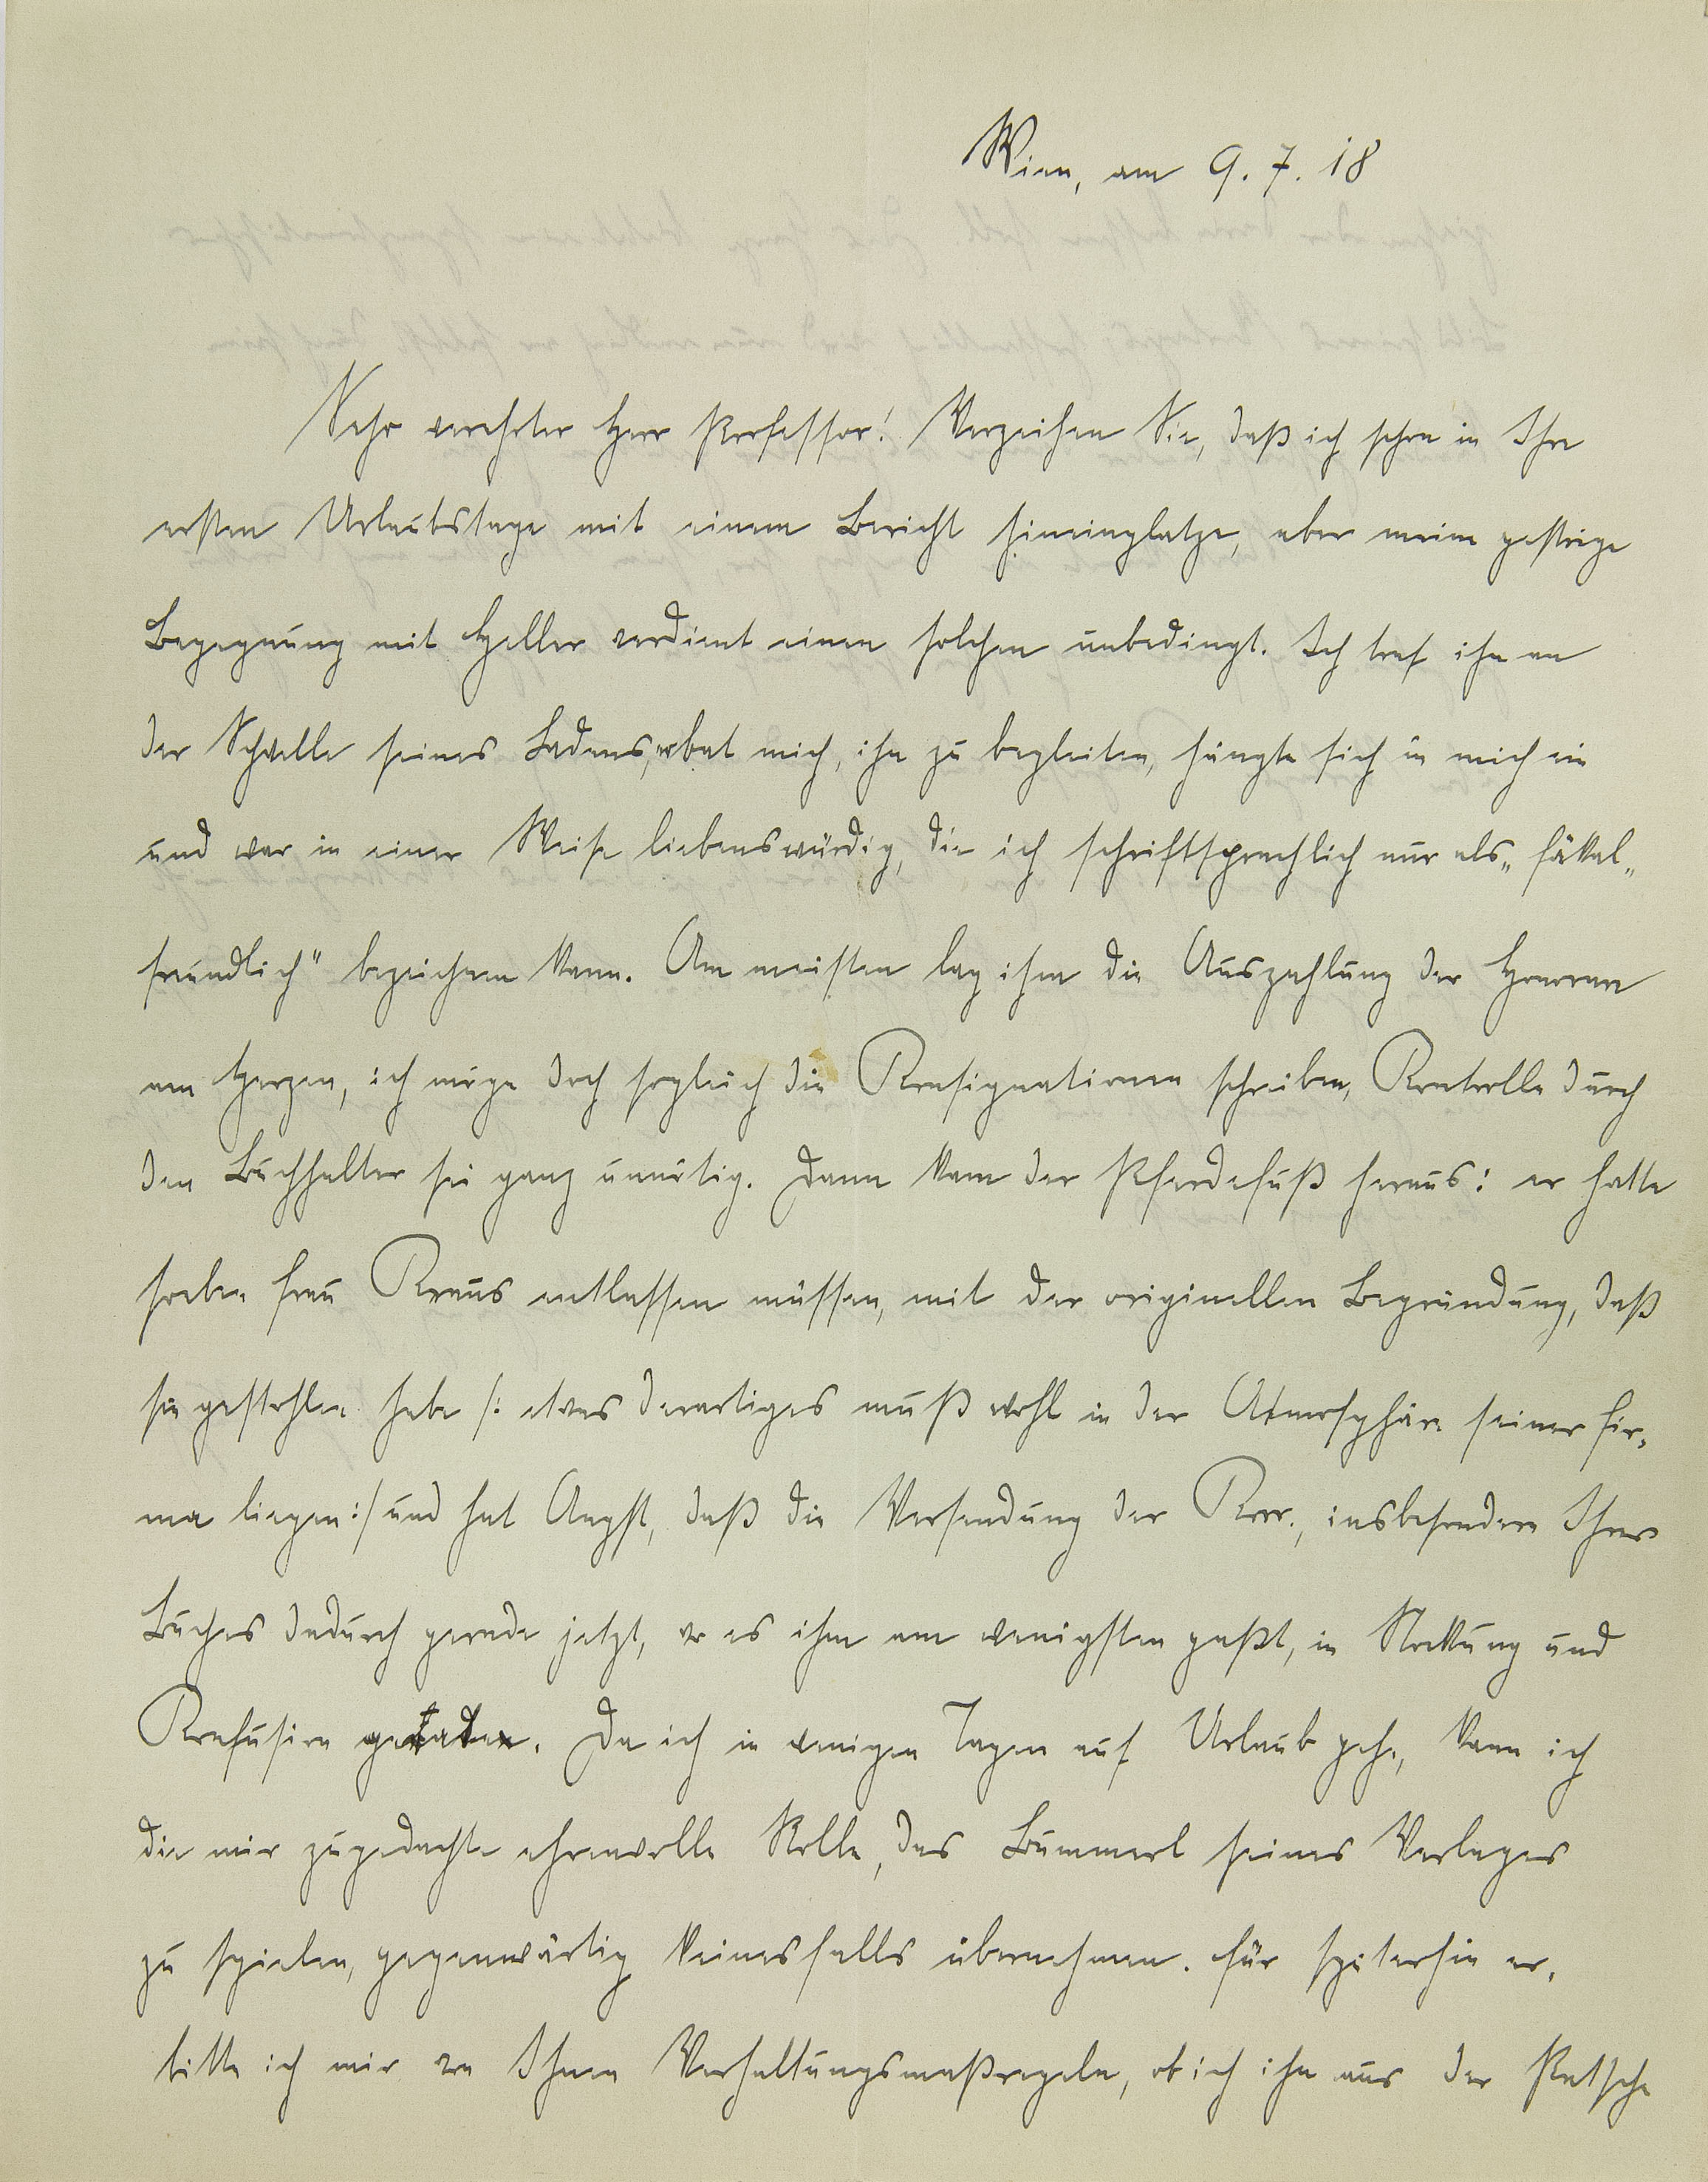 Wien, am 9. 7. 18
Sehr verehrter Herr Professor! Verzeihen Sie, daß ich schon in Ihre
ersten Urlaubstage mit einem Bericht hineinplatze, aber meine gestrige
Begegnung mit Heller verdient einen solchen unbedingt. Ich traf ihn an
der Schwelle seines Ladens, er bat mich, ihn zu begleiten, hängte sich in mich ein
und war in einer Weise liebenswürdig, die ich schriftsprachlich nur als „fäkal-
freundlich" bezeichnen kann. Am meisten lag ihm die Auszahlung der Honorare
am Herzen, ich möge doch sogleich die Konsignationen schreiben, Kontrolle durch
den Buchhalter sei ganz unnötig. Dann kam der Pferdefuß heraus: er hatte
soeben Frau Kraus entlassen müssen, mit der originellen Begründung, daß
sie gestohlen habe /: etwas derartiges muß wohl in der Atmosphäre seiner Fir-
ma liegen :/ und hat Angst, daß die Versendung der Korr., insbesondere Ihres
Buches dadurch gerade jetzt, wo es ihm am wenigsten paßt, in Stockung und
Konfusion geraten. Da ich in wenigen Tagen auf Urlaub gehe, kann ich
die mir zugedachte ehrenvolle Rolle, das Bummerl seines Verlages
zu spielen, gegenwärtig keinesfalls übernehmen. Für späterhin er-
bitte ich mir von Ihnen Verhaltungsmaßregeln, ob ich ihn aus der Patsche